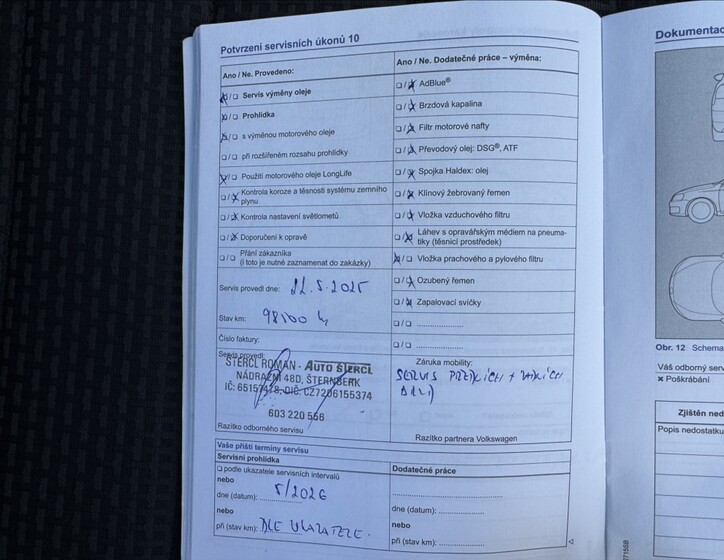 Potvrzení servisních úkonů 10
Ano / Ne. Provedeno:
Servis výměny oleje
Prohlídka
s výměnou motorového oleje
při rozšířeném rozsahu prohlídky
Použití motorového oleje LongLife
Kontrola koroze a těsnosti systému zemního
plynu
Kontrola nastavení světlometů
Doporučení k opravě
Přání zákazníka
(i toto je nutné zaznamenat do zakázky)
Servis provedl dne: 22.5.2025
Stav km: 98100 km
Číslo faktury:
Servis provedl:
ŠTERCL ROMAN - AUTO ŠTERCL
NÁDRAŽNÍ 48D, ŠTERNBERK
IČ: 65157478, DIČ: CZ7206155374
603 220 556
Razítko odborného servisu
Ano / Ne. Dodatečné práce – výměna:
AdBlue®
Brzdová kapalina
Filtr motorové nafty
Převodový olej: DSG®, ATF
Spojka Haldex: olej
Klínový žebrovaný řemen
Vložka vzduchového filtru
Láhev s opravářským médiem na pneuma-
tiky (těsnicí prostředek)
Vložka prachového a pylového filtru
Ozubený řemen
Zapalovací svíčky
Záruka mobility:
SERVIS
Razítko partnera Volkswagen
Vaše příští termíny servisu
Servisní prohlídka
podle ukazatele servisních intervalů
nebo
dne (datum): 5/2026
nebo
při (stav km): DLE UKAZATELE.
Dodatečné práce
dne (datum):
nebo
při (stav km):
Dokumentac
Obr. 12 Schema
Váš odborný serv
× Poškrábání
Zjištěn
Popis nedostatku